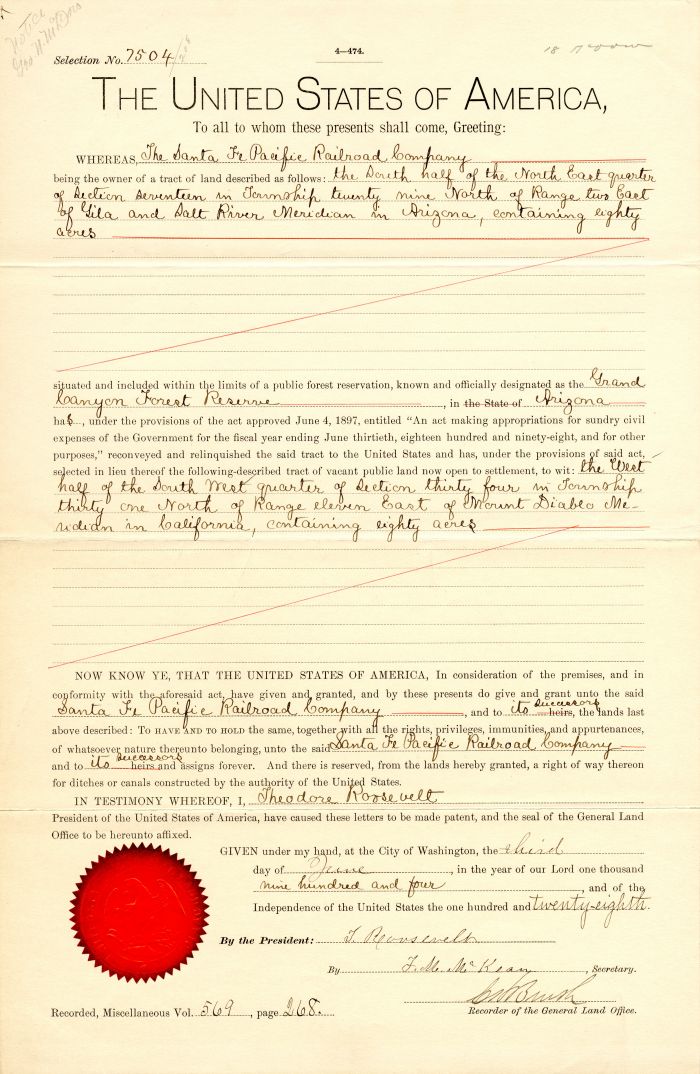 Notice
4—474.
Selection No. 7504
THE UNITED STATES OF AMERICA,
To all to whom these presents shall come, Greeting:
WHEREAS, The Santa Fe Pacific Railroad Company
being the owner of a tract of land described as follows: the South half of the North East quarter
of Section seventeen in Township twenty nine North of Range two East
of Gila and Salt River Meridian in Arizona, containing eighty
acres
situated and included within the limits of a public forest reservation, known and officially designated as the Grand
Canyon Forest Reserve, in the State of Arizona
has, under the provisions of the act approved June 4, 1897, entitled “An act making appropriations for sundry civil
expenses of the Government for the fiscal year ending June thirtieth, eighteen hundred and ninety-eight, and for other
purposes,” reconveyed and relinquished the said tract to the United States and has, under the provisions of said act,
selected in lieu thereof the following-described tract of vacant public land now open to settlement, to wit: the West
half of the South West quarter of Section thirty four in Township
thirty one North of Range eleven East of Mount Diablo Me-
ridian in California, containing eighty acres
NOW KNOW YE, THAT THE UNITED STATES OF AMERICA, In consideration of the premises, and in
conformity with the aforesaid act, have given and granted, and by these presents do give and grant unto the said
Santa Fe Pacific Railroad Company, and to its successors heirs, the lands last
above described: TO HAVE AND TO HOLD the same, together with all the rights, privileges, immunities, and appurtenances,
of whatsoever nature thereunto belonging, unto the said Santa Fe Pacific Railroad Company
and to its successors heirs and assigns forever. And there is reserved, from the lands hereby granted, a right of way thereon
for ditches or canals constructed by the authority of the United States.
IN TESTIMONY WHEREOF, I, Theodore Roosevelt
President of the United States of America, have caused these letters to be made patent, and the seal of the General Land
Office to be hereunto affixed.
GIVEN under my hand, at the City of Washington, the third
day of June, in the year of our Lord one thousand
nine hundred and four, and of the
Independence of the United States the one hundred and twenty-eighth.
By the President: T. Roosevelt
By F. M. McKean, Secretary.
Recorded, Miscellaneous Vol. 569, page 268.
Recorder of the General Land Office.